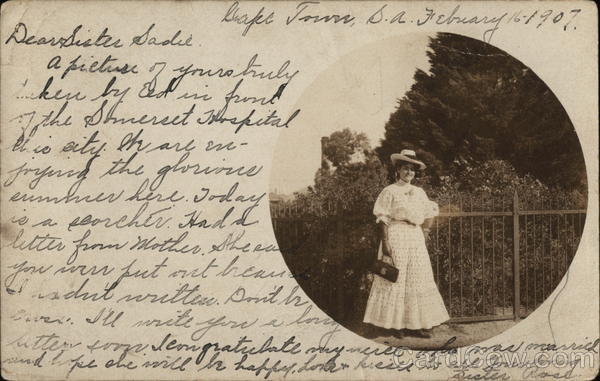 Cape Town, S.A. February 16-1907.
Dear Sister Sadie.
A picture of yours truly
taken by Ed in front
of the Somerset Hospital
this city. We are en-
joying the glorious
summer here. Today
is a scorcher. Had a
letter from Mother. She
you were put out because
I hadn't written. Don't be
I'll write you a long
letter soon. Congratulate my was married
and hope she will be happy, love & kisses to
Sister Rose
CardCow.com